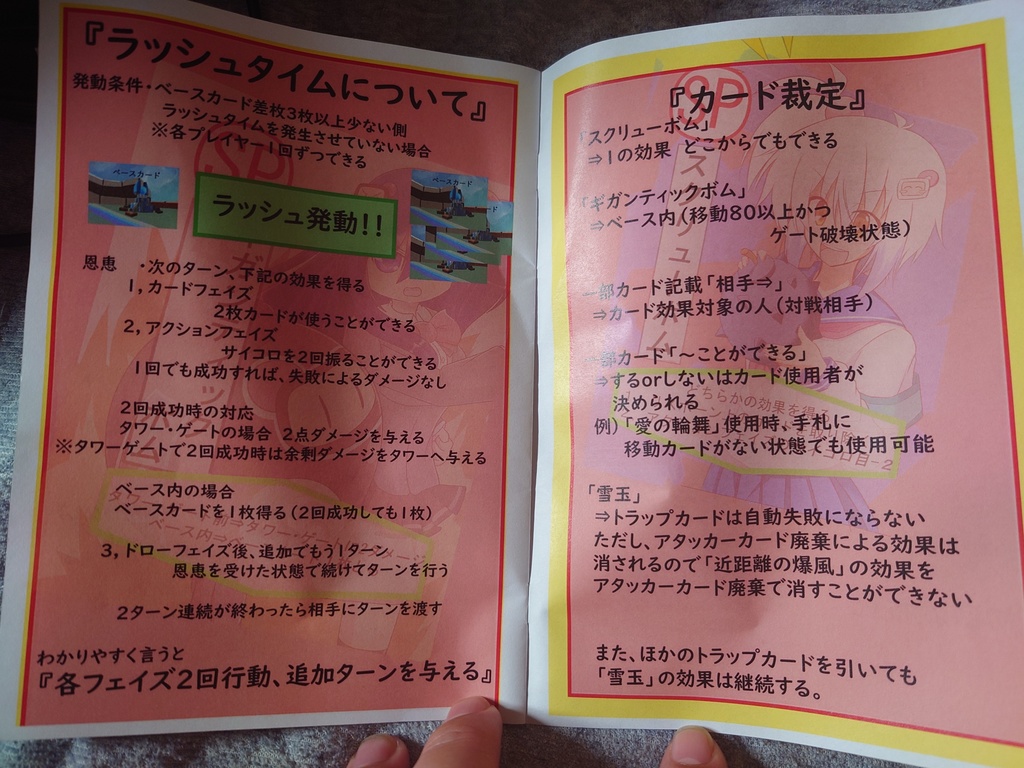 『ラッシュタイムについて』
発動条件・ベースカード差枚3枚以上少ない側
ラッシュタイムを発生させていない場合
※各プレイヤー1回ずつできる
ベースカード
ラッシュ発動!!
ベースカード
恩恵 ・次のターン、下記の効果を得る
1, カードフェイズ
2枚カードが使うことができる
2, アクションフェイズ
サイコロを2回振ることができる
1回でも成功すれば、失敗によるダメージなし
2回成功時の対応
タワー・ゲートの場合 2点ダメージを与える
※タワーゲートで2回成功時は余剰ダメージをタワーへ与える
ベース内の場合
ベースカードを1枚得る(2回成功しても1枚)
3, ドローフェイズ後、追加でもう1ターン
恩恵を受けた状態で続けてターンを行う
2ターン連続が終わったら相手にターンを渡す
わかりやすく言うと
『各フェイズ2回行動、追加ターンを与える』
『カード裁定』
「スクリューボム」
⇒1の効果 どこからでもできる
「ギガンティックボム」
⇒ベース内(移動80以上かつ
ゲート破壊状態)
一部カード記載「相手⇒」
⇒カード効果対象の人(対戦相手)
一部カード「～ことができる」
⇒するorしないはカード使用者が
決められる
例)「愛の輪舞」使用時、手札に
移動カードがない状態でも使用可能
「雪玉」
⇒トラップカードは自動失敗にならない
ただし、アタッカーカード廃棄による効果は
消されるので「近距離の爆風」の効果を
アタッカーカード廃棄で消すことができない
また、ほかのトラップカードを引いても
「雪玉」の効果は継続する。
SP